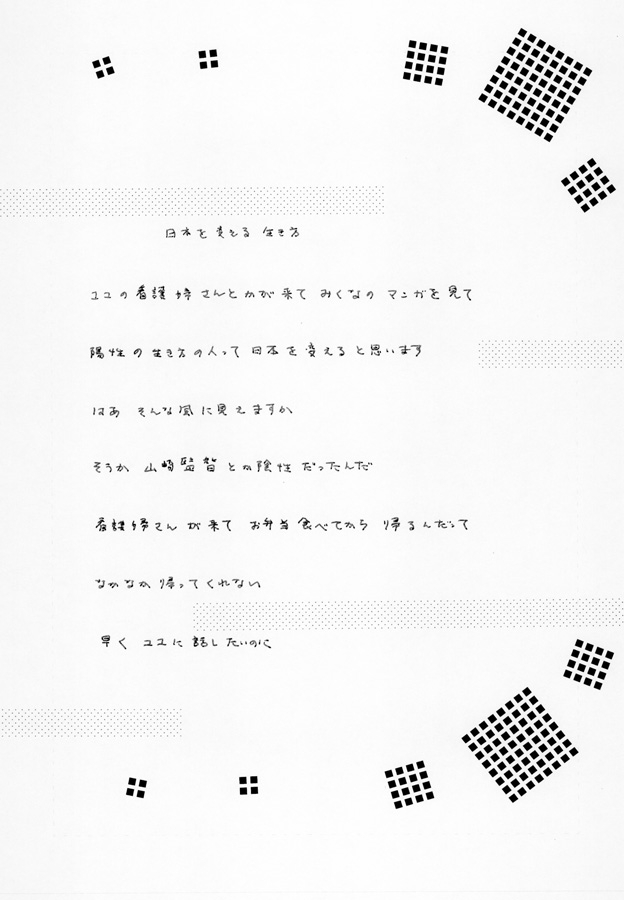 日本を変える 生き方
ユユの看護婦さんとかが来て みくなの マンガを見て
陽性の生き方の人って日本を変えると思います
はあ そんな風に見えますか
そうか 山崎監督とか陰性だったんだ
看護婦さんが来て お弁当食べてから 帰るんだって
なかなか帰ってくれない
早く ユユに話したいのに